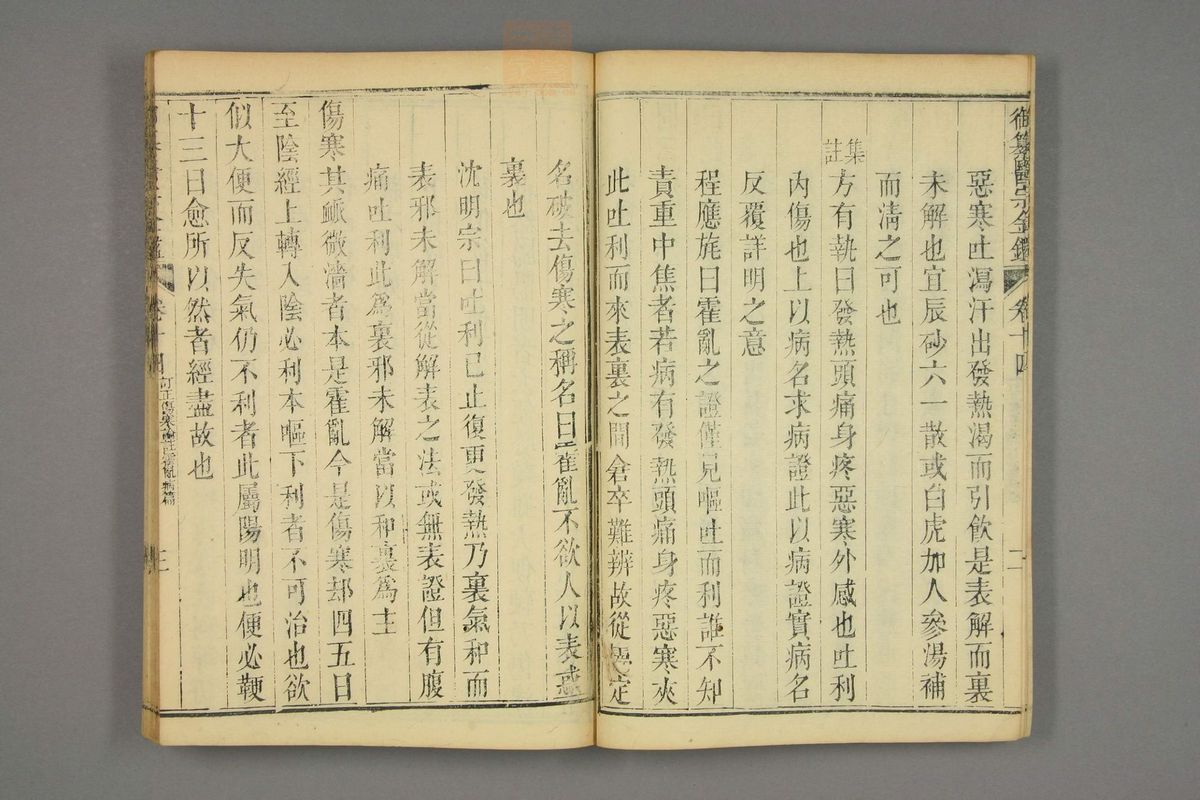 御纂醫宗金鑑 卷十四 二
惡寒吐瀉汗出發熱渴而引飲是表解而裏
未解也宜辰砂六一散或白虎加人參湯補
而淸之可也
集註
方有執曰發熱頭痛身疼惡寒外感也吐利
內傷也上以病名求病證此以病證實病名
反覆詳明之意
程應旄曰霍亂之證僅見嘔吐而利誰不知
責重中焦者若病有發熱頭痛身疼惡寒夾
此吐利而來表裏之間倉卒難辨故從定
名破去傷寒之稱名曰霍亂不欲人以表惑
裏也
沈明宗曰吐利已止復更發熱乃裏氣和而
表邪未解當從解表之法或無表證但有腹
痛吐利此爲裏邪未解當以和裏爲主
傷寒其脈微濇者本是霍亂今是傷寒却四五日
至陰經上轉入陰必利本嘔下利者不可治也欲
似大便而反失氣仍不利者此屬陽明也便必鞕
十三日愈所以然者經盡故也
卷十四 訂正傷寒論註霍亂病篇 三